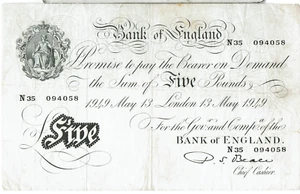 Bank of England
N35 094058
I Promise to pay the Bearer on Demand
the Sum of Five Pounds
1949 May 13 London 13 May 1949
For the Govr. and Compa. of the
N35 094058
BANK OF ENGLAND.
Five
P. S. Beale
Chief Cashier.